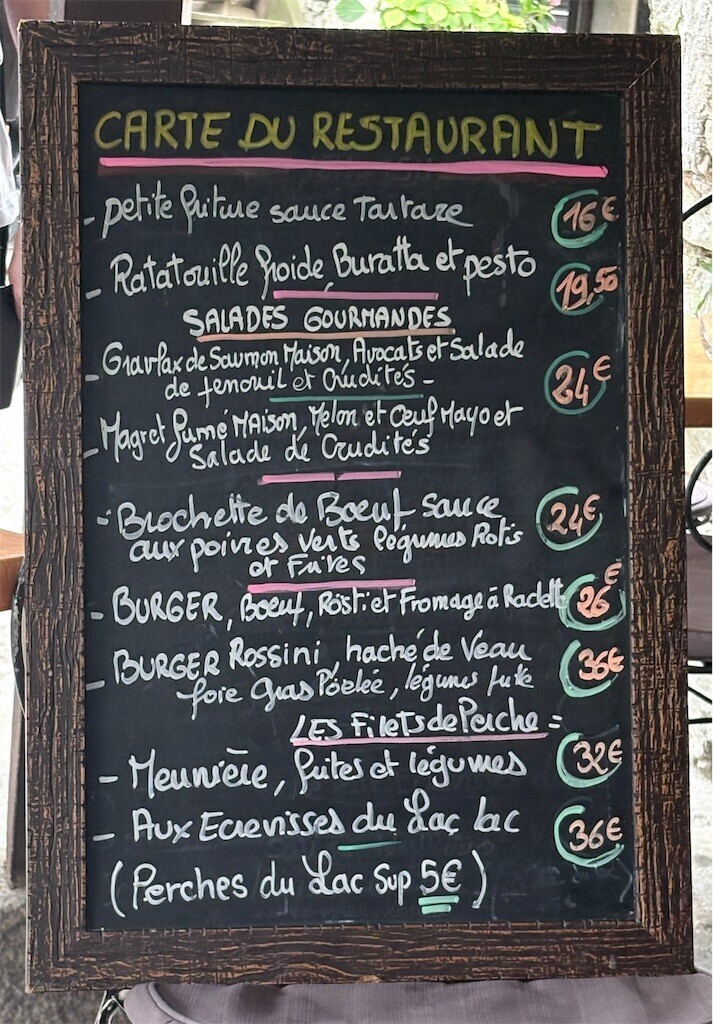 CARTE DU RESTAURANT
- petite friture sauce Tartare 16€
- Ratatouille froide, Buratta et pesto 19,50
SALADES GOURMANDES
- Gravlax de Saumon Maison, Avocats et Salade
de fenouil et Crudités - 24€
- Magret fumé MAison, Melon et Oeuf Mayo et
Salade de Crudités
- Brochette de Boeuf sauce 24€
aux poivres verts légumes Rotis
et Frites
- BURGER, Boeuf, Rösti et Fromage à Raclett 26€
- BURGER Rossini, haché de Veau 36€
foie Gras Poêlée, légumes frite
LES Filets de Perche =
- Meunière, frites et légumes 32€
- Aux Ecrevisses du Lac lac 36€
(Perches du Lac Sup 5€)